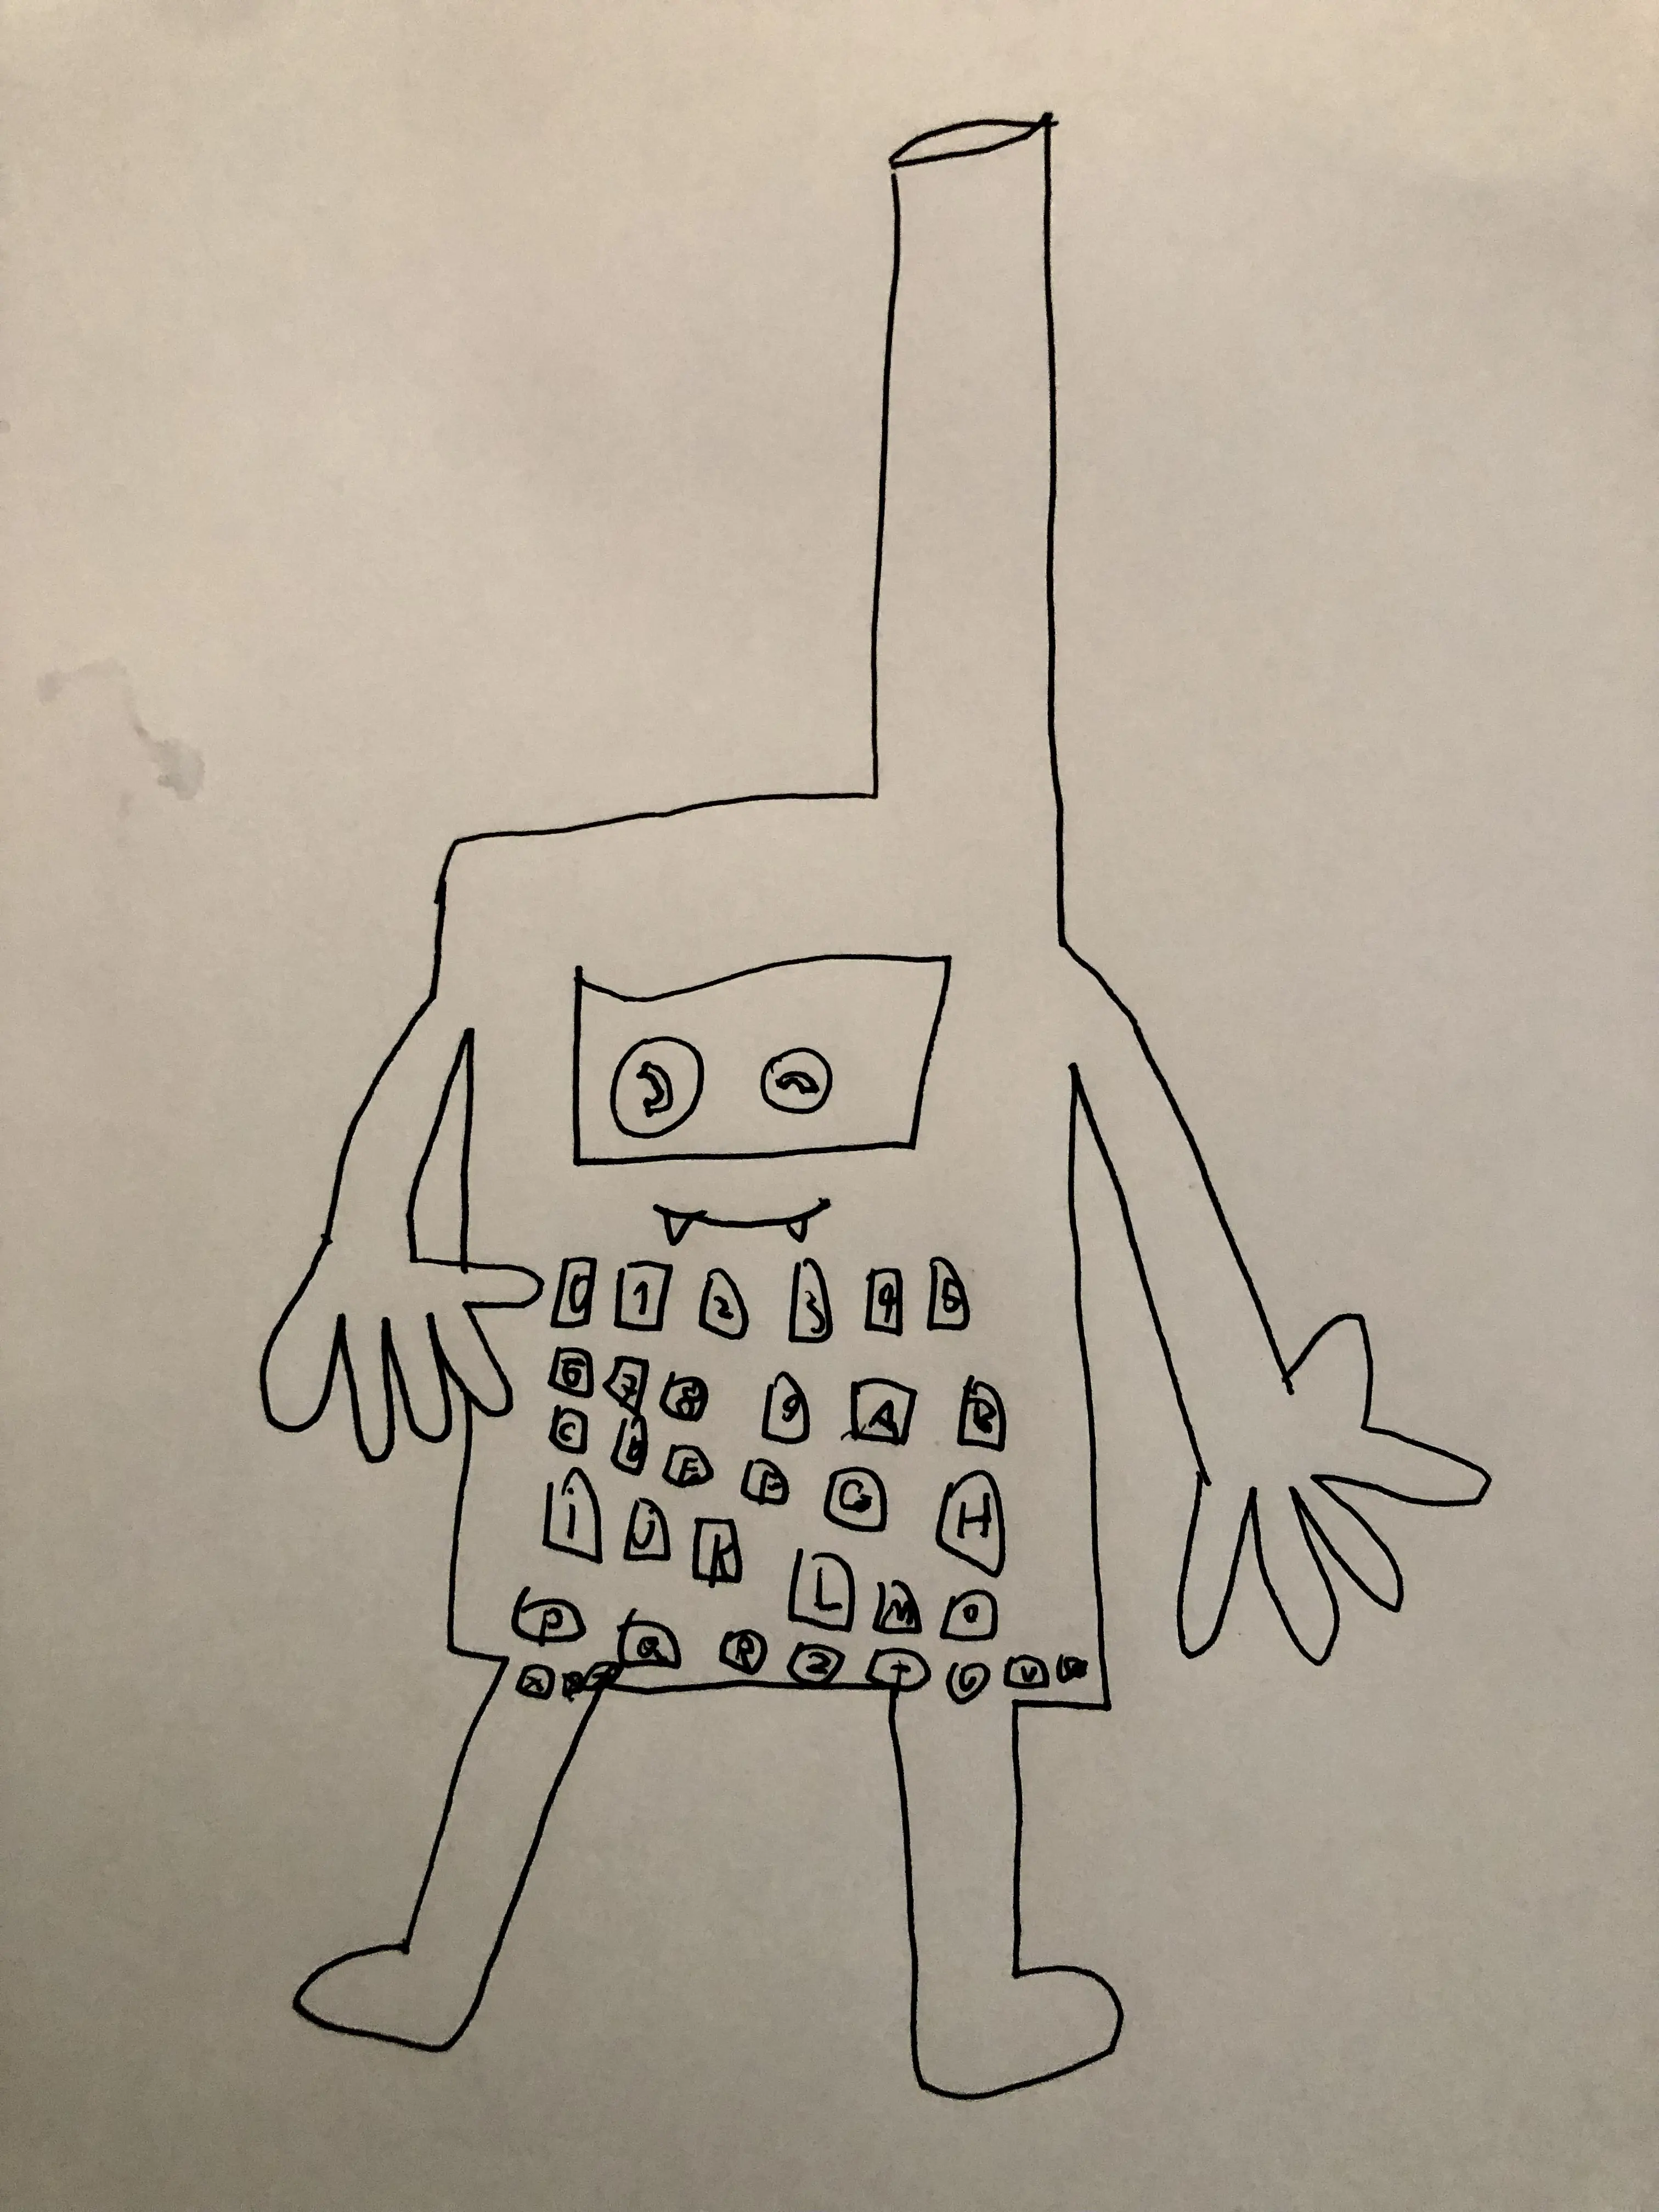 0 1 2 3 4 5
6 7 8 9 A B
C E F G H
i J K L M O
P Q R T U V
X